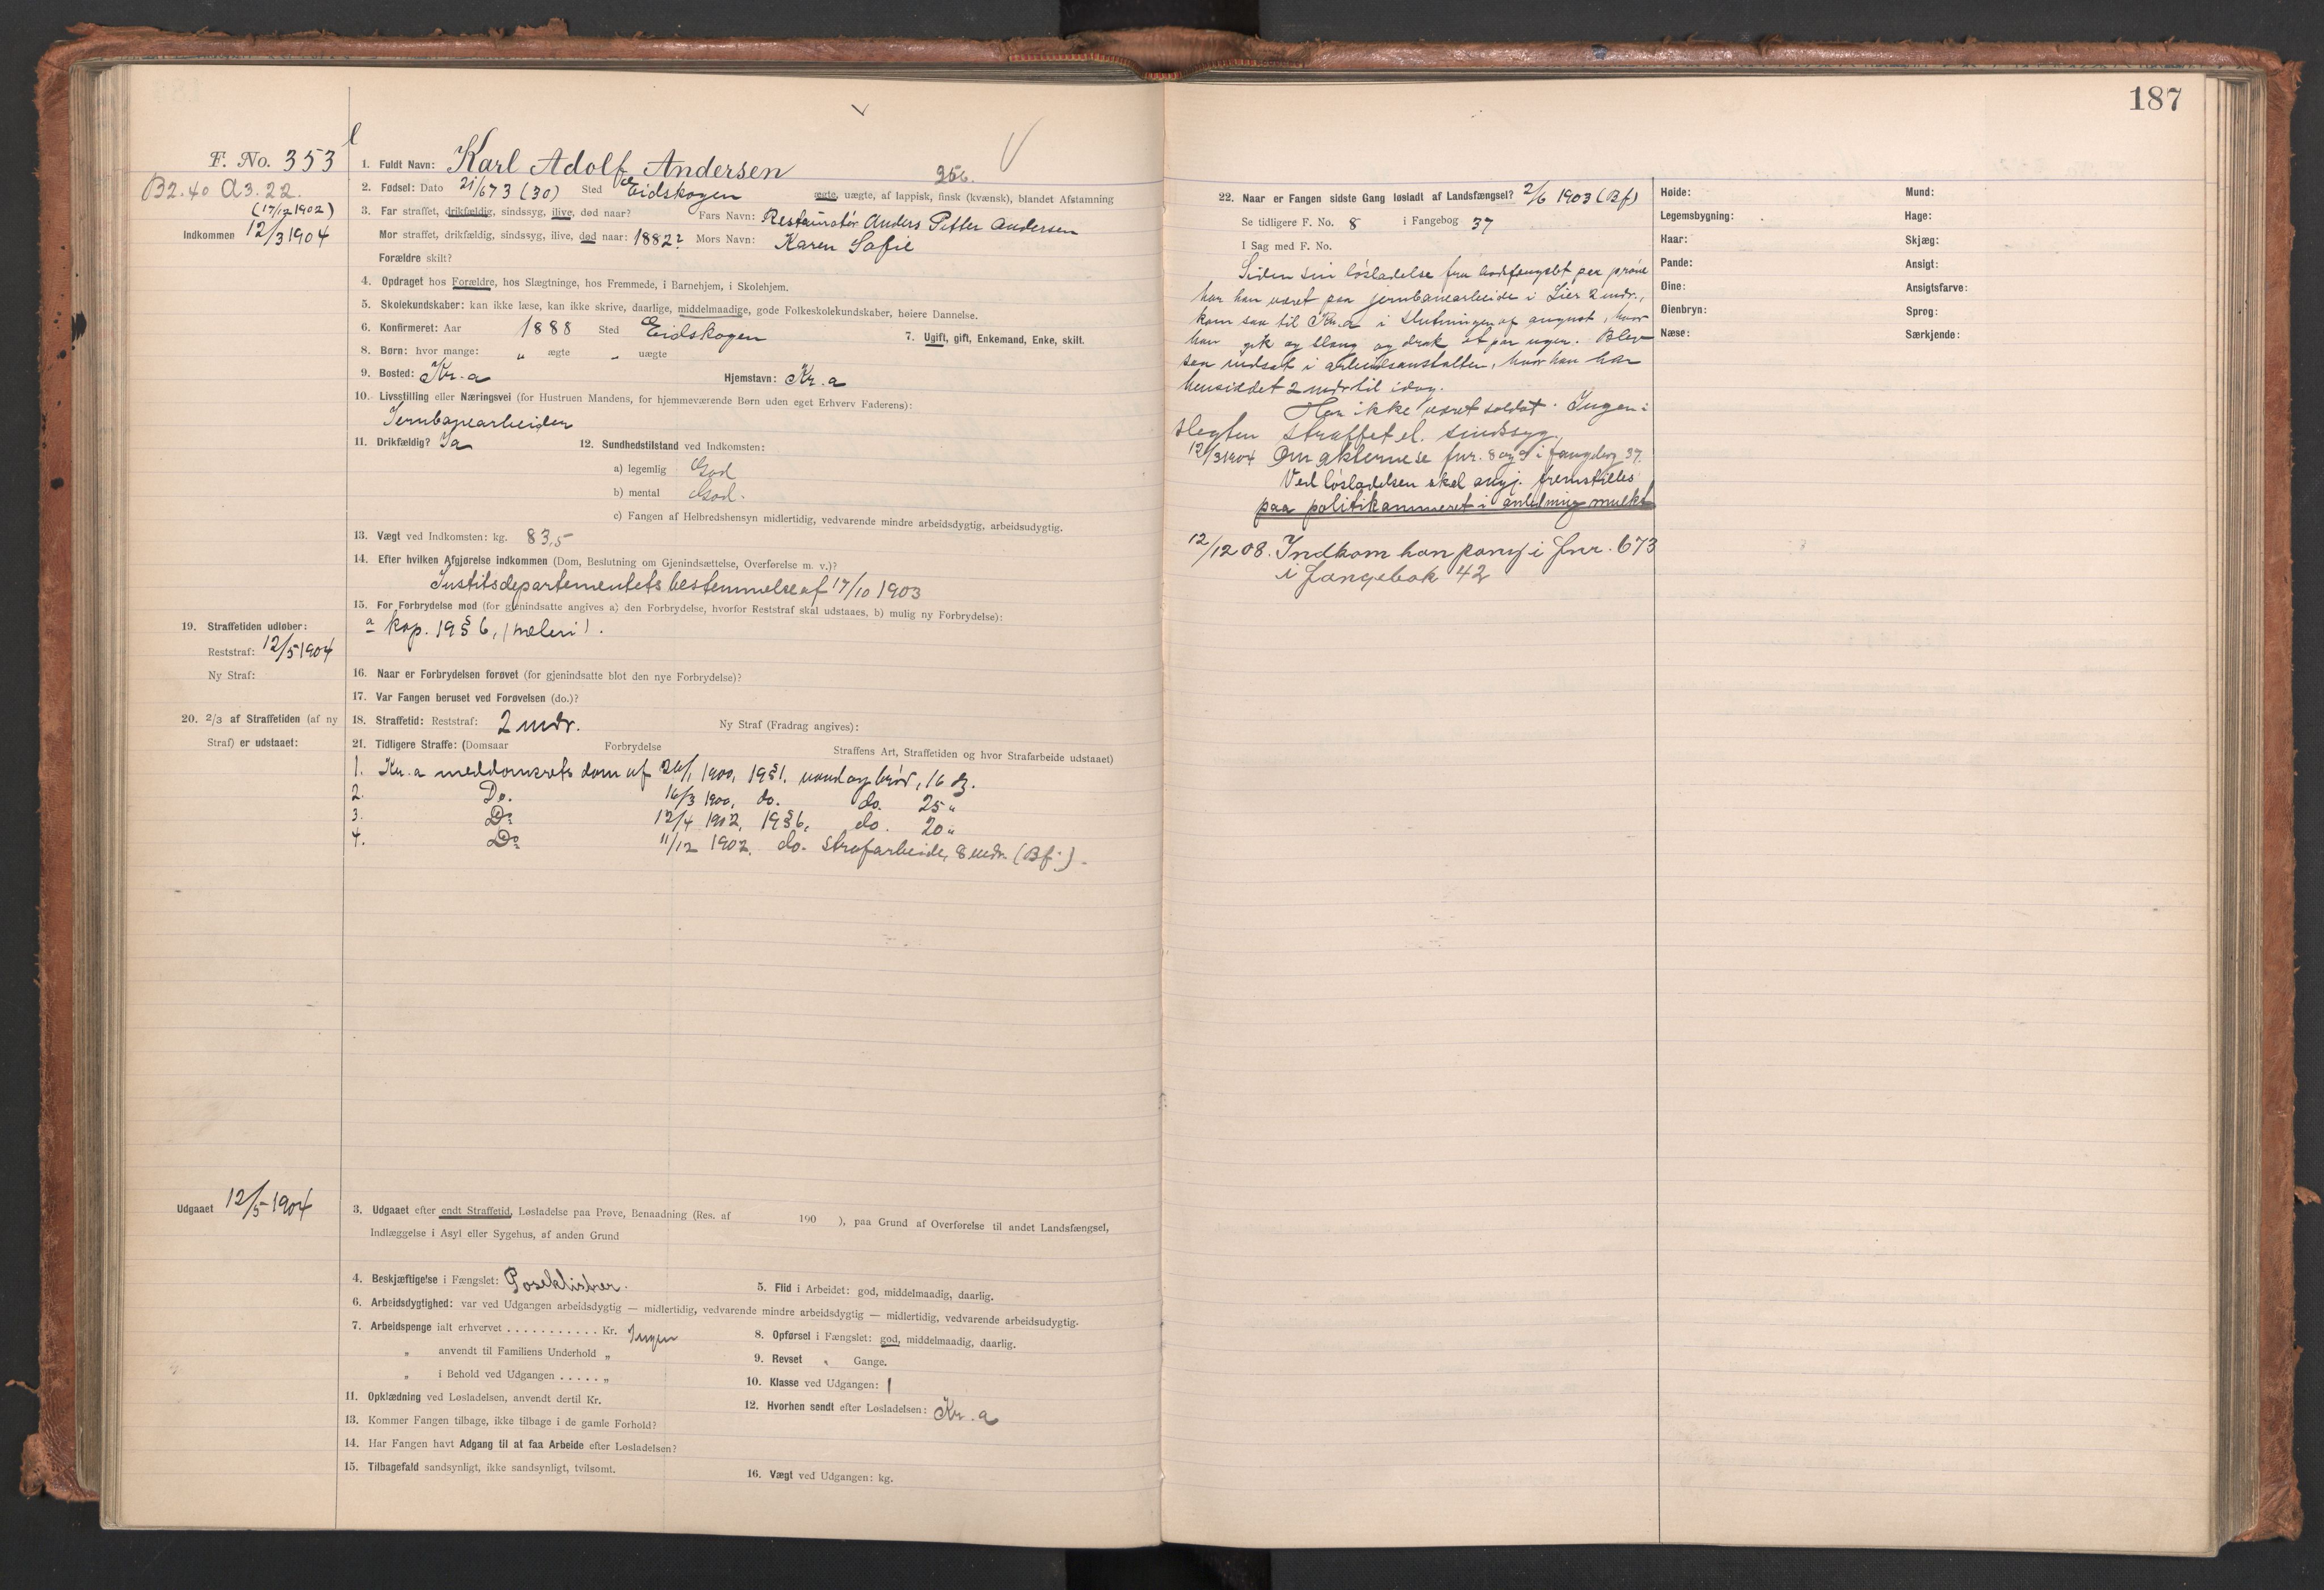 187
F. No. 353
B2.40 A3.22.
(17/12 1902)
Indkommen 12/3 1904
1. Fuldt Navn: Karl Adolf Andersen
256.
2. Fødsel: Dato 21/6 73 (30) Sted Eidskogen ægte, uægte, af lappisk, finsk (kvænsk), blandet Afstamning
3. Far straffet, drikfældig, sindssyg, ilive, død naar? Fars Navn: Restauratør Anders Petter Andersen
Mor straffet, drikfældig, sindssyg, ilive, død naar: 1882? Mors Navn: Karen Sofie
Forældre skilt?
4. Opdraget hos Forældre, hos Slægtninge, hos Fremmede, i Barnehjem, i Skolehjem.
5. Skolekundskaber: kan ikke læse, kan ikke skrive, daarlige, middelmaadige, gode Folkeskolekundskaber, høiere Dannelse.
6. Konfirmeret: Aar 1888 Sted Eidskogen 7. Ugift, gift, Enkemand, Enke, skilt.
8. Børn: hvor mange: „ ægte „ uægte
9. Bosted: Kr.a Hjemstavn: Kr.a
10. Livsstilling eller Næringsvei (for Hustruen Mandens, for hjemmeværende Børn uden eget Erhverv Faderens):
Jernbanearbeider
11. Drikfældig? Ja 12. Sundhedstilstand ved Indkomsten:
a) legemlig God
b) mental God.
c) Fangen af Helbredshensyn midlertidig, vedvarende mindre arbeidsdygtig, arbeidsudygtig.
13. Vægt ved Indkomsten: kg. 83,5
14. Efter hvilken Afgjørelse indkommen (Dom, Beslutning om Gjenindsættelse, Overførelse m. v.)?
Justitsdepartementets bestemmelse af 17/10 1903
15. For Forbrydelse mod (for gjenindsatte angives a) den Forbrydelse, hvorfor Reststraf skal udstaaes, b) mulig ny Forbrydelse):
a kap. 19 § 6, (hæleri).
19. Straffetiden udløber:
Reststraf: 12/5 1904
Ny Straf:
16. Naar er Forbrydelsen forøvet (for gjenindsatte blot den nye Forbrydelse)?
17. Var Fangen beruset ved Forøvelsen (do.)?
20. 2/3 af Straffetiden (af ny
Straf) er udstaaet:
18. Straffetid: Reststraf: 2 mdr. Ny Straf (Fradrag angives):
21. Tidligere Straffe: (Domsaar Forbrydelse Straffens Art, Straffetiden og hvor Strafarbeide udstaaet)
1. Kr.a meddomsrets dom af 26/1 1900, 19 § 1. vand og brød, 16 dg.
2. Do. 16/3 1900, do. do. 25 „
3. Do 12/4 1902, 19 § 6, do. 20 „
4. Do 11/12 1902. do. strafarbeide, 8 mdr. (Bf.).
Udgaaet 12/5 1904
3. Udgaaet efter endt Straffetid, Løsladelse paa Prøve, Benaadning (Res. af 190 ), paa Grund af Overførelse til andet Landsfængsel,
Indlæggelse i Asyl eller Sygehus, af anden Grund
4. Beskjæftigelse i Fængslet: Poseklistrer. 5. Flid i Arbeidet: god, middelmaadig, daarlig.
6. Arbeidsdygtighed: var ved Udgangen arbeidsdygtig — midlertidig, vedvarende mindre arbeidsdygtig — midlertidig, vedvarende arbeidsudygtig.
7. Arbeidspenge ialt erhvervet . . . . . . . . . . . Kr. Ingen 8. Opførsel i Fængslet: god, middelmaadig, daarlig.
„ anvendt til Familiens Underhold „ 9. Revset „ Gange.
„ i Behold ved Udgangen . . . . . „ 10. Klasse ved Udgangen: 1
11. Opklædning ved Løsladelsen, anvendt dertil Kr. 12. Hvorhen sendt efter Løsladelsen: Kr.a
13. Kommer Fangen tilbage, ikke tilbage i de gamle Forhold?
14. Har Fangen havt Adgang til at faa Arbeide efter Løsladelsen?
15. Tilbagefald sandsynligt, ikke sandsynligt, tvilsomt. 16. Vægt ved Udgangen: kg.
22. Naar er Fangen sidste Gang løsladt af Landsfængsel? 2/6 1903 (Bf)
Se tidligere F. No. 8 i Fangebog 37
I Sag med F. No.
Siden sin løsladelse fra bodsfængslet paa prøve
har han været paa jernbanearbeide i Lier 2 mdr.,
kom saa til Kr.a i slutningen af august, hvor
han gik og slang og drak et par uger. Blev
saa indsat i arbeidsanstalten, hvor han har
hensiddet 2 mdr til idag.
Har ikke været soldat. Ingen i
slegten straffet el. sindssyg.
12/3 1904 Om akterne se fnr. 8 og 9 i fangebog 37.
Ved løsladelsen skal angj. fremstilles
paa politikammeret i anledning mulkt
12/12 08. Indkom han paany i fnr. 673
i fangebok 42
Høide:
Legemsbygning:
Haar:
Pande:
Øine:
Øienbryn:
Næse:
Mund:
Hage:
Skjæg:
Ansigt:
Ansigtsfarve:
Sprog:
Særkjende: